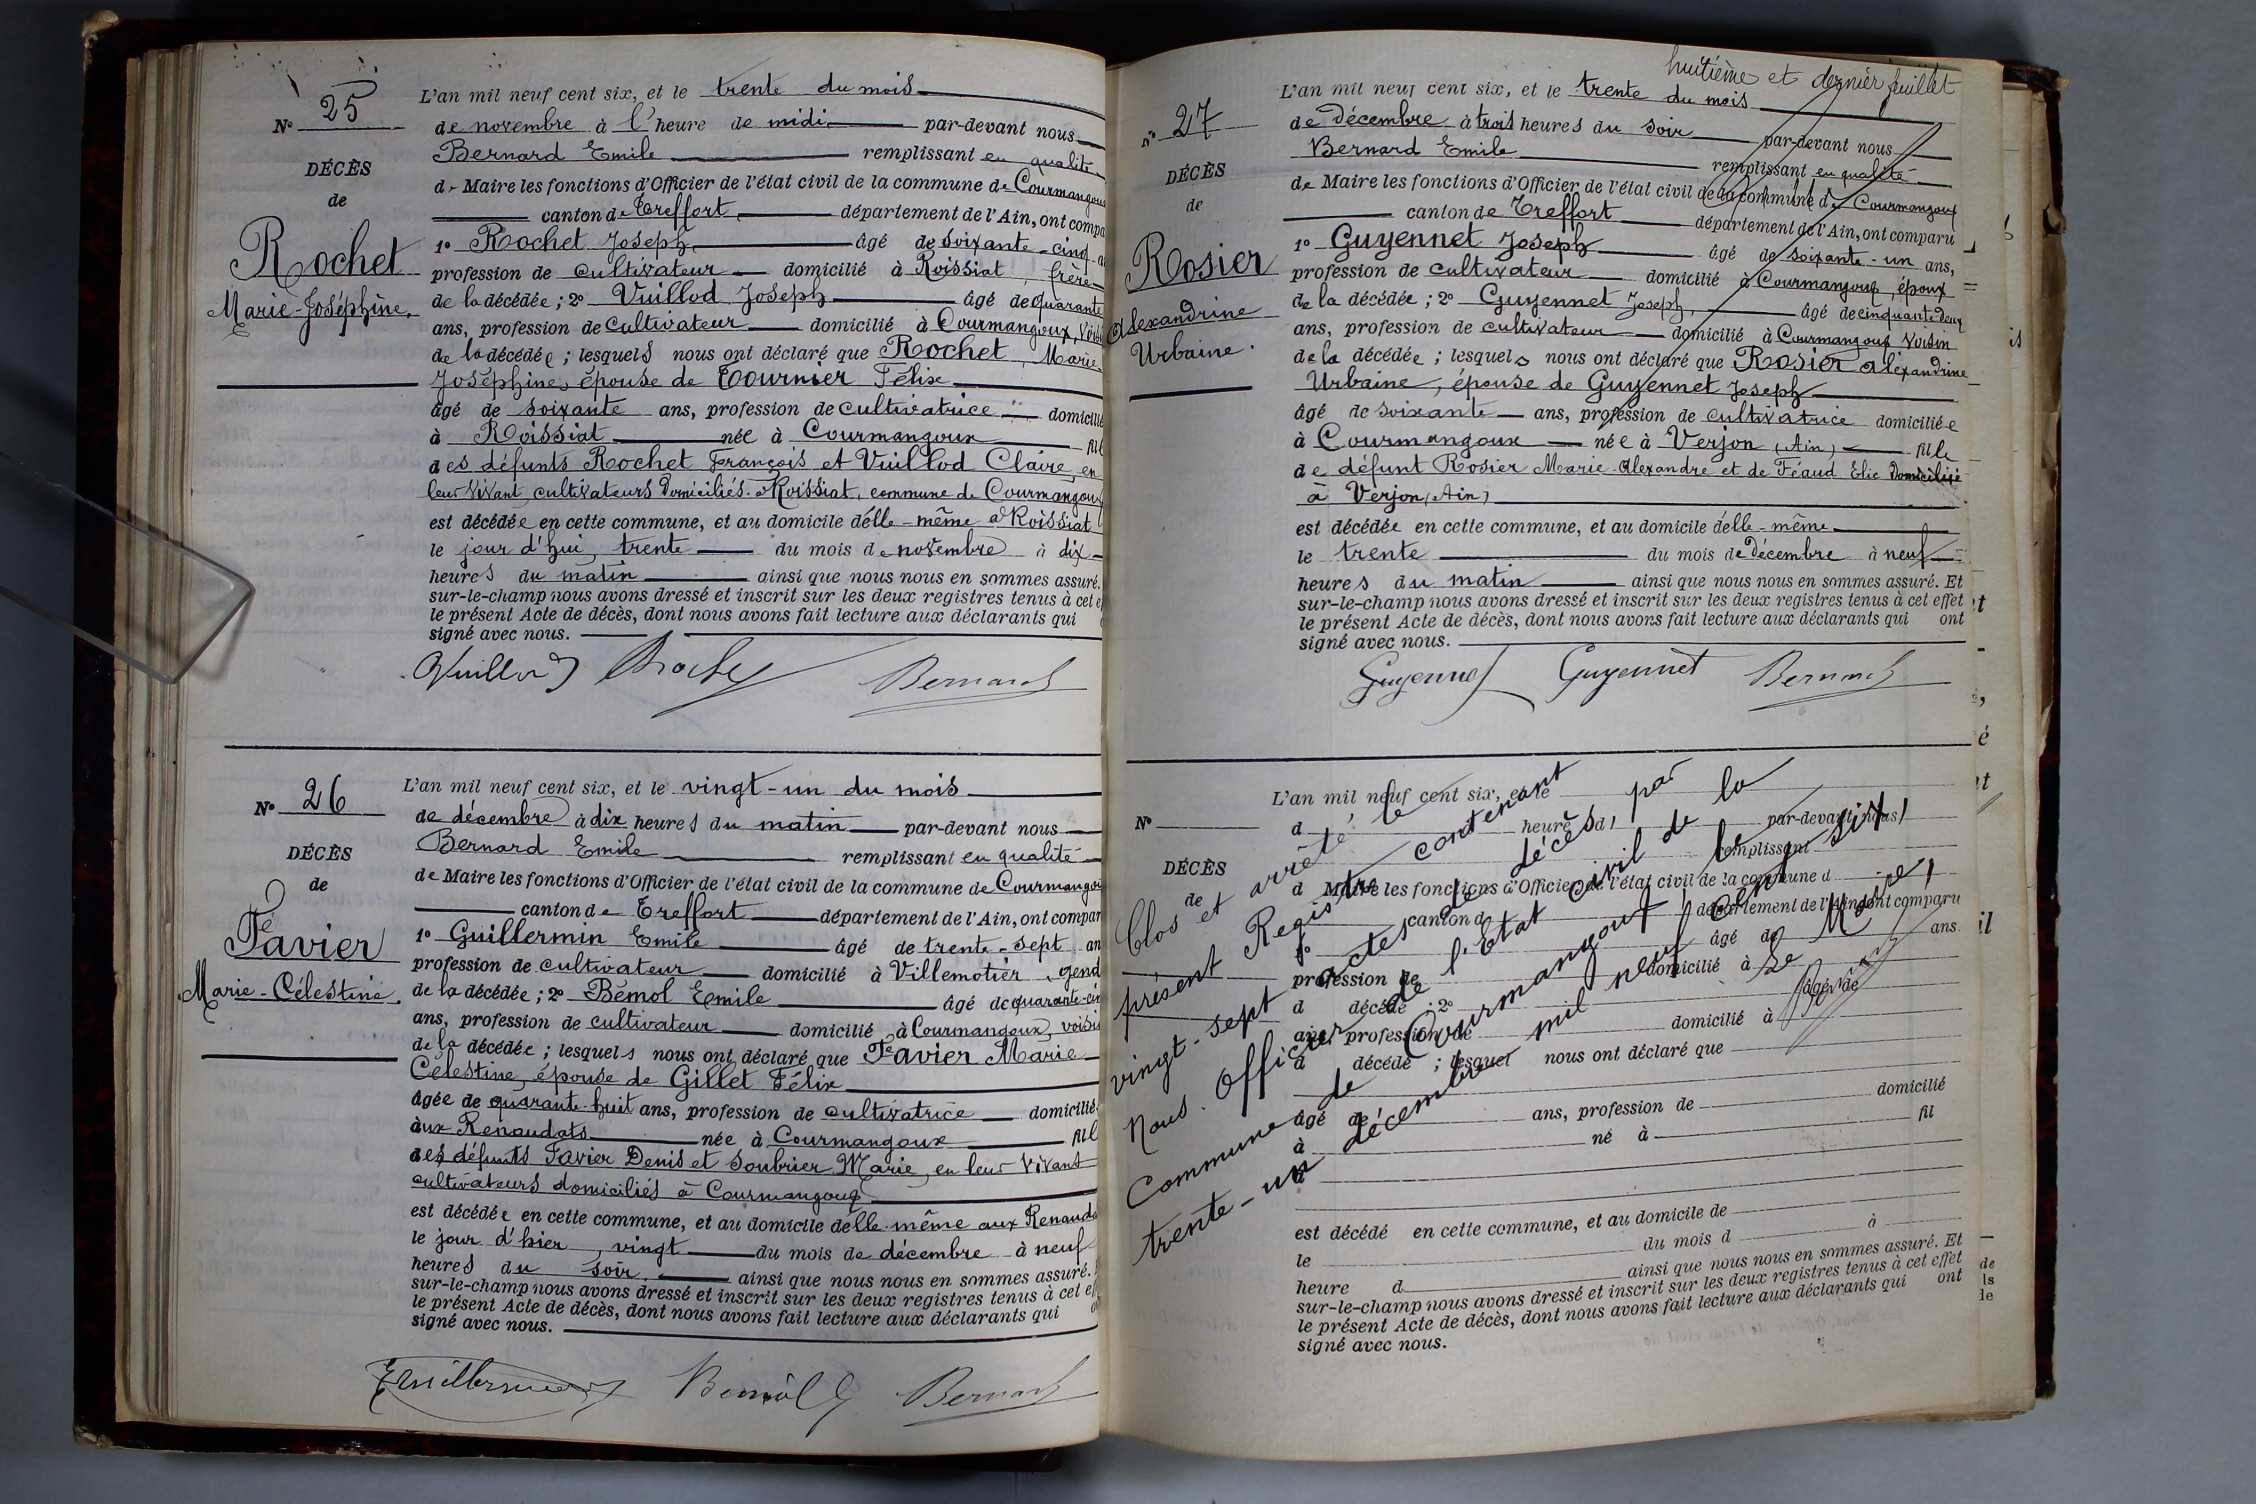 N° 25
DÉCÈS
de
Rochet
Marie-Joséphine.
L'an mil neuf cent six, et le trente du mois
de novembre à l'heure de midi par-devant nous
Bernard Emile remplissant en qualité
de Maire les fonctions d'Officier de l'état civil de la commune de Courmangoux
canton de Treffort département de l'Ain, ont compa
1° Rochet Joseph âgé de soixante-cinq a
profession de cultivateur domicilié à Roissiat, frère
de la décédée ; 2° Vuillod Joseph âgé de quarante
ans, profession de cultivateur domicilié à Courmangoux, voisin
de la décédée ; lesquels nous ont déclaré que Rochet, Marie
Joséphine, épouse de Tournier Félix
âgé de soixante ans, profession de cultivatrice domicilié
à Roissiat née à Courmangoux fill
des défunts Rochet François et Vuillod Claire, en
leur vivant cultivateurs domiciliés à Roissiat, commune de Courmangoux
est décédée en cette commune, et au domicile d'elle-même à Roissiat
le jour d'hui, trente du mois de novembre à dix
heures du matin ainsi que nous nous en sommes assuré.
sur-le-champ nous avons dressé et inscrit sur les deux registres tenus à cet e
le présent Acte de décès, dont nous avons fait lecture aux déclarants qui
signé avec nous.
Vuillod Rochet Bernard
N° 26
DÉCÈS
de
Favier
Marie-Célestine.
L'an mil neuf cent six, et le vingt-un du mois
de décembre à dix heures du matin par-devant nous
Bernard Emile remplissant en qualité
de Maire les fonctions d'Officier de l'état civil de la commune de Courmangou
canton de Treffort département de l'Ain, ont compar
1° Guillermin Emile âgé de trente-sept an
profession de cultivateur domicilié à Villemotier, gend
de la décédée ; 2° Bémol Emile âgé de quarante-cin
ans, profession de cultivateur domicilié à Courmangoux, voisin
de la décédée ; lesquels nous ont déclaré que Favier Marie
Célestine, épouse de Gillet Félix
âgée de quarante-huit ans, profession de cultivatrice domicilié
aux Renaudats née à Courmangoux fill
des défunts Favier Denis et Soubrier Marie, en leur vivant
cultivateurs domiciliés à Courmangoux
est décédée en cette commune, et au domicile d'elle-même aux Renauda
le jour d'hier, vingt du mois de décembre à neuf
heures du soir. ainsi que nous nous en sommes assuré.
sur-le-champ nous avons dressé et inscrit sur les deux registres tenus à cet ef
le présent Acte de décès, dont nous avons fait lecture aux déclarants qui
signé avec nous.
Guillermin Bemol Bernard
huitième et dernier feuillet
N° 27
DÉCÈS
de
Rosier
Alexandrine
Urbaine.
L'an mil neuf cent six, et le trente du mois
de décembre à trois heures du soir par-devant nous
Bernard Emile remplissant en qualité
de Maire les fonctions d'Officier de l'état civil de la commune de Courmangoux
canton de Treffort département de l'Ain, ont comparu
1° Guyennet Joseph âgé de soixante-un ans,
profession de cultivateur domicilié à Courmangoux, époux
de la décédée ; 2° Guyennet Joseph, âgé de cinquante-deux
ans, profession de cultivateur domicilié à Courmangoux voisin
de la décédée ; lesquels nous ont déclaré que Rosier Alexandrine
Urbaine, épouse de Guyennet Joseph
âgé de soixante ans, profession de cultivatrice domiciliée
à Courmangoux née à Verjon (Ain) fille
de défunt Rosier Marie-Alexandre et de Féaud Elie domicilié
à Verjon (Ain)
est décédée en cette commune, et au domicile d'elle-même
le trente du mois de décembre à neuf
heures du matin ainsi que nous nous en sommes assuré. Et
sur-le-champ nous avons dressé et inscrit sur les deux registres tenus à cet effet
le présent Acte de décès, dont nous avons fait lecture aux déclarants qui ont
signé avec nous.
Guyennet Guyennet Bernard
N°
DÉCÈS
de
L'an mil neuf cent six, et le
d heure d par-devant nous
remplissant
d Maire les fonctions d'Officier de l'état civil de la commune d
canton d département de l'Ain, ont comparu
1° âgé de ans
profession de domicilié à
d décédé ; 2° âgé de
ans, profession de domicilié à
d décédé ; lesquel nous ont déclaré que
âgé de ans, profession de domicilié
à né à fil
d
est décédé en cette commune, et au domicile de
le du mois d à
heure d ainsi que nous nous en sommes assuré. Et
sur-le-champ nous avons dressé et inscrit sur les deux registres tenus à cet effet
le présent Acte de décès, dont nous avons fait lecture aux déclarants qui ont
signé avec nous.
Clos et arrêté, le
présent Registre contenant
vingt-sept actes de décès, par
Nous Officier de l'Etat civil de la
Commune de Courmangoux, le
trente-un décembre mil neuf cent six,
Le Maire,
Bernard